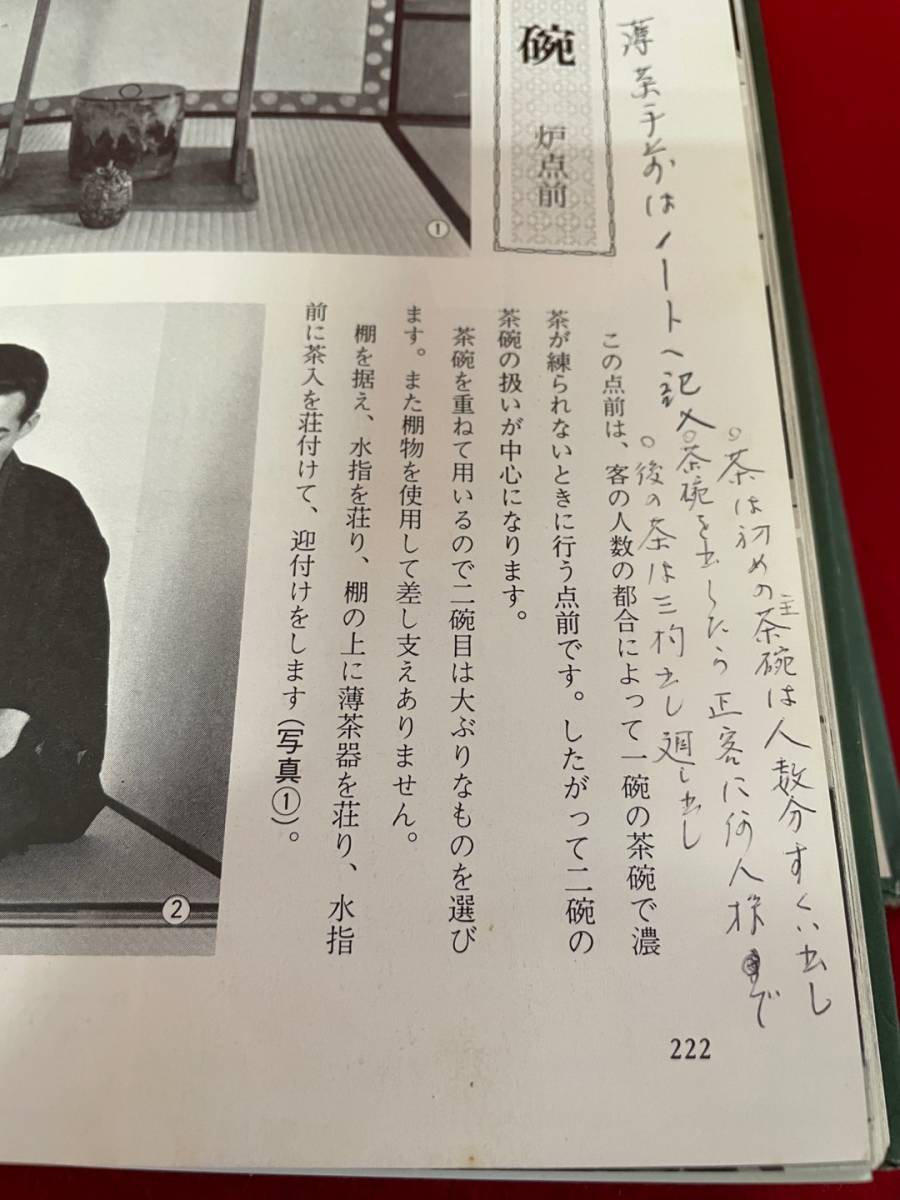 碗
炉点前
薄茶手前はノートへ記入
○茶は初めの主茶碗は人数分すくい出し
○茶碗を出したら正客に何人様で
○後の茶は三杓出し廻し出し
この点前は、客の人数の都合によって一碗の茶碗で濃
茶が練られないときに行う点前です。したがって二碗の
茶碗の扱いが中心になります。
茶碗を重ねて用いるので二碗目は大ぶりなものを選び
ます。また棚物を使用して差し支えありません。
棚を据え、水指を荘り、棚の上に薄茶器を荘り、水指
前に茶入を荘付けて、迎付けをします（写真①）。
①
②
222